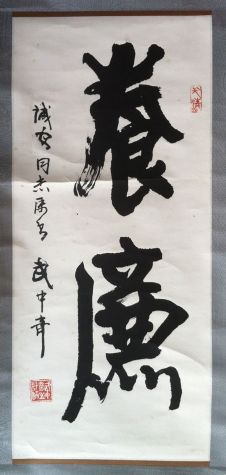 養廉
誠安同志属书 武中奇